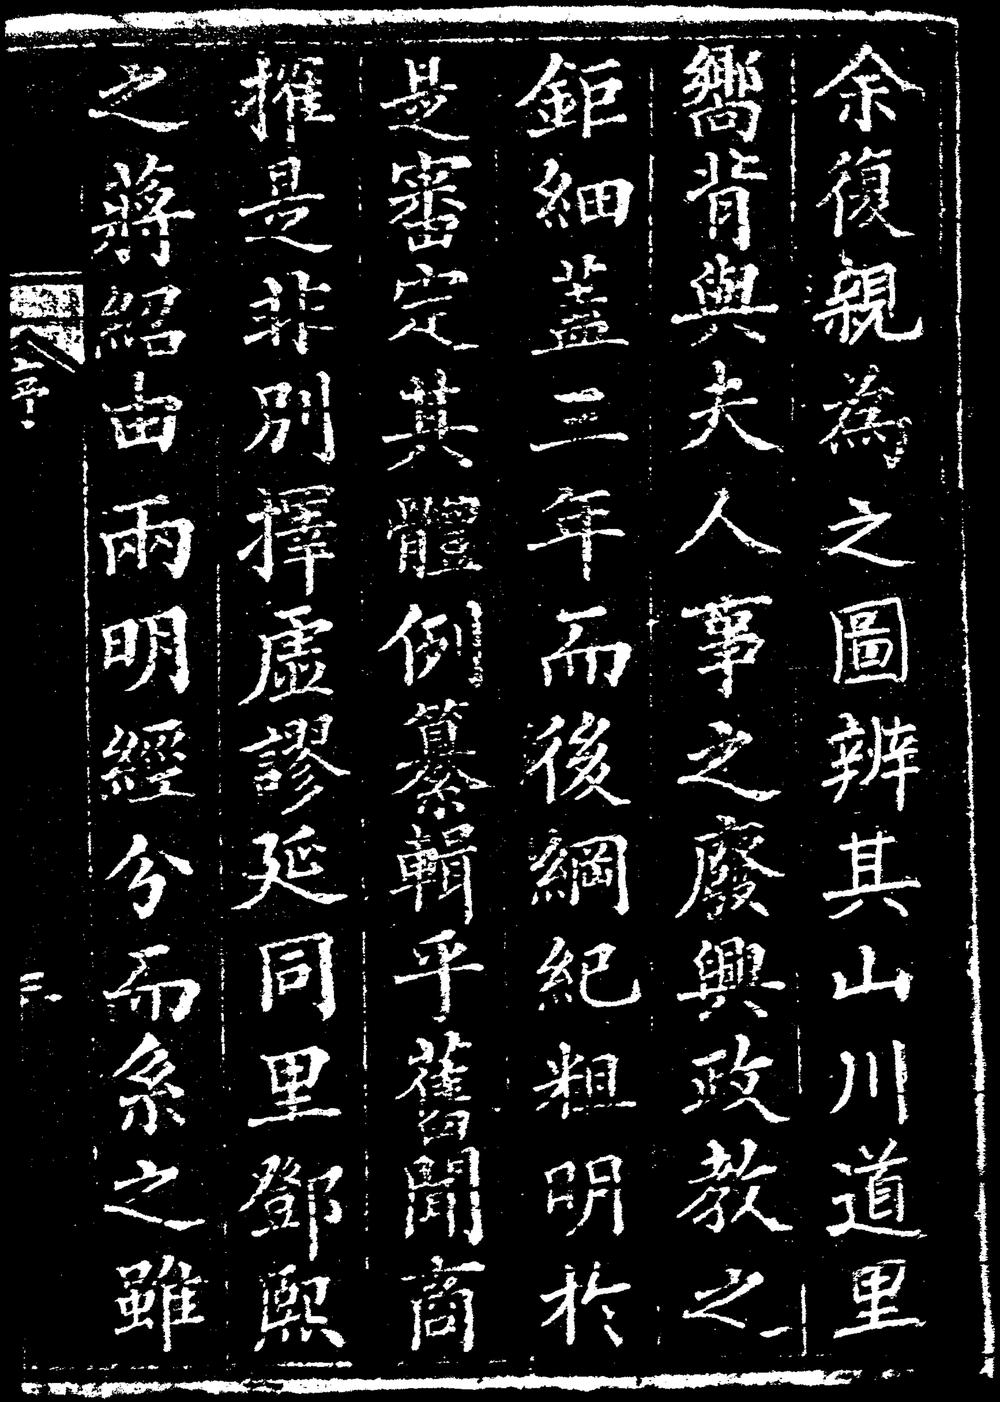 余復親為之圖辨其山川道里
嚮背與夫人事之廢興政教之
鉅細蓋三年而後綱紀粗明於
是審定其體例纂輯乎舊聞商
搉是非別擇虛謬延同里鄧熙
之蔣紹由兩明經分而系之雖
序